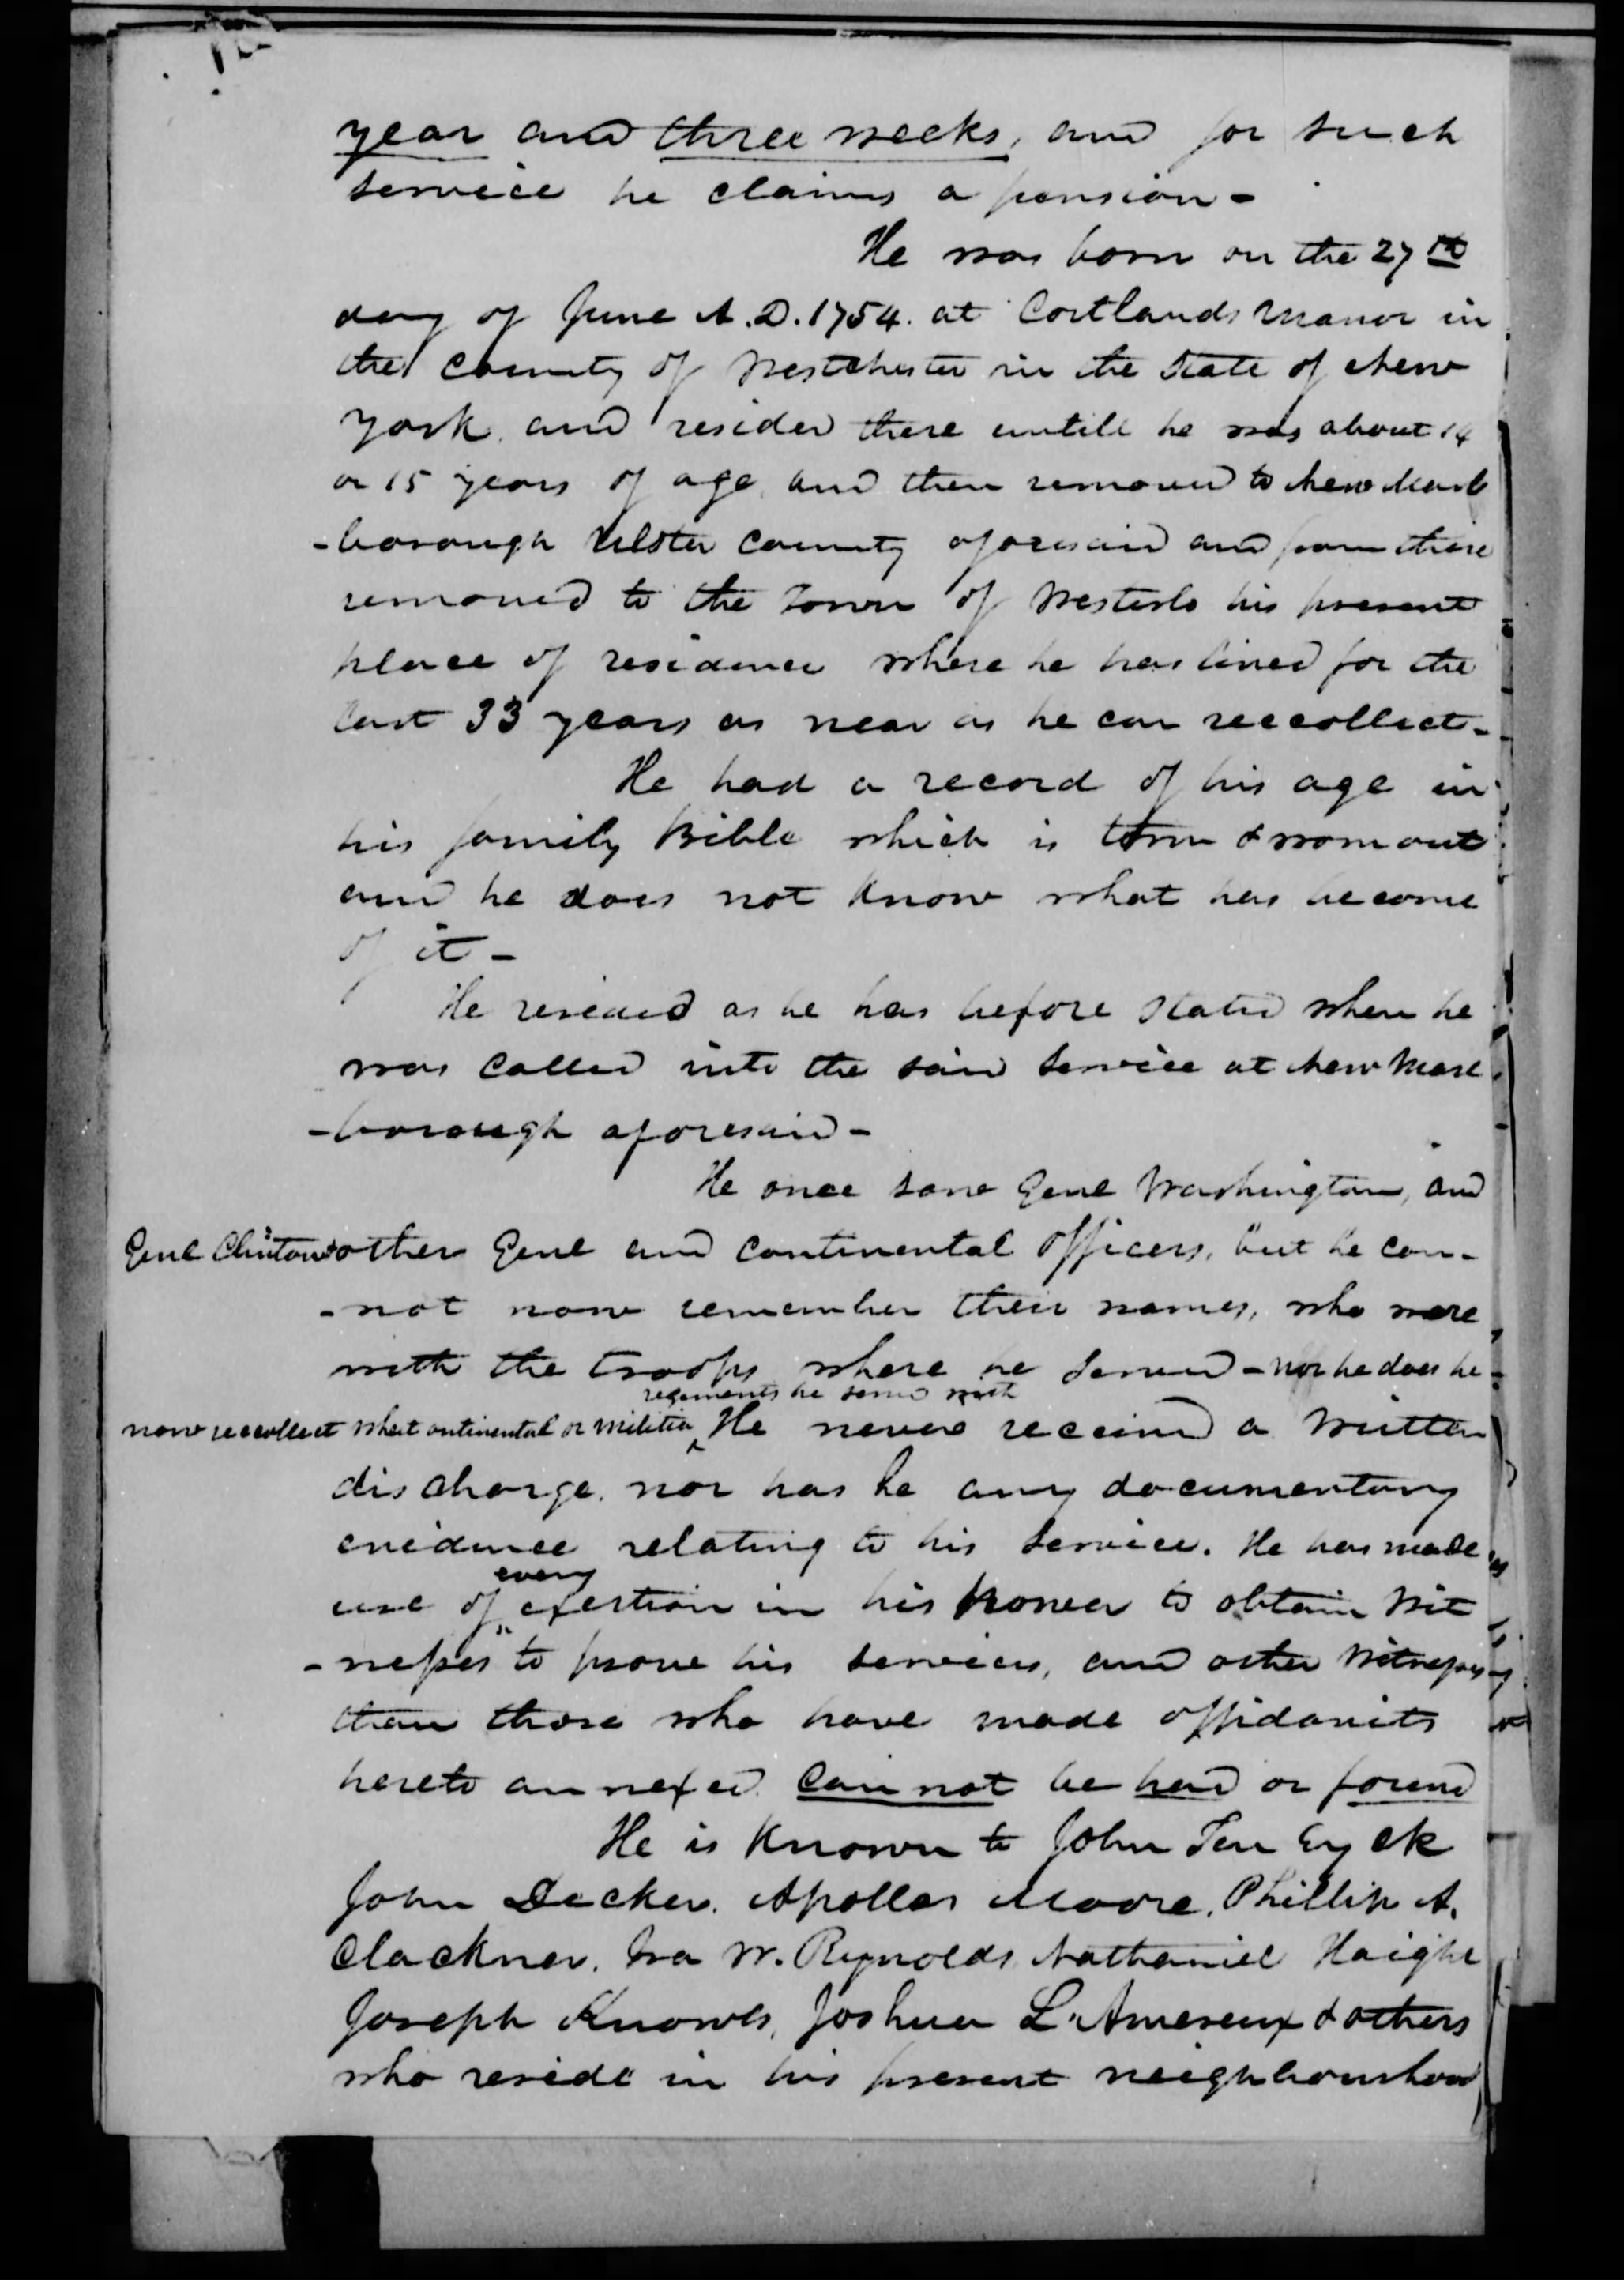 year and three weeks, and for such
service he claims a pension -
He was born on the 27th
day of June A.D. 1754. at Cortlands Manor in
the County of Westchester in the State of New
York, and resided there untill he was about 14
or 15 years of age, and then removed to New Marl
-borough Ulster County aforesaid and from there
removed to the Town of Westerlo his present
place of residence where he has lived for the
last 33 years as near as he can reccollect -
He had a record of his age in
his family Bible which is torn & worn out
and he does not know what has become
of it -
He resided as he has before stated when he
was called into the said service at New Marl
-borough aforesaid -
He once saw Genl Washington, and
Genl Clinton & other Genl and Continental Officers, but he can-
-not now remember their names, who were
with the troops where he served - nor he does he
regiments he served with
now reccollect what continental or militia ^ He never received a written
discharge, nor has he any documentary
evidence relating to his service. He has made
every
use of exertion in his power to obtain Wit
-nesses to prove his services, and other Witnesses
than those who have made affidavits
hereto annexed. Can not be had or found
He is Known to John Ten Eyck
John Decker. Apollos Moore. Phillip A.
Clackner. Ira W. Reynolds, Nathaniel Haight
Joseph Knowls, Joshua L'Amereux & others
who reside in his present neighbourhood